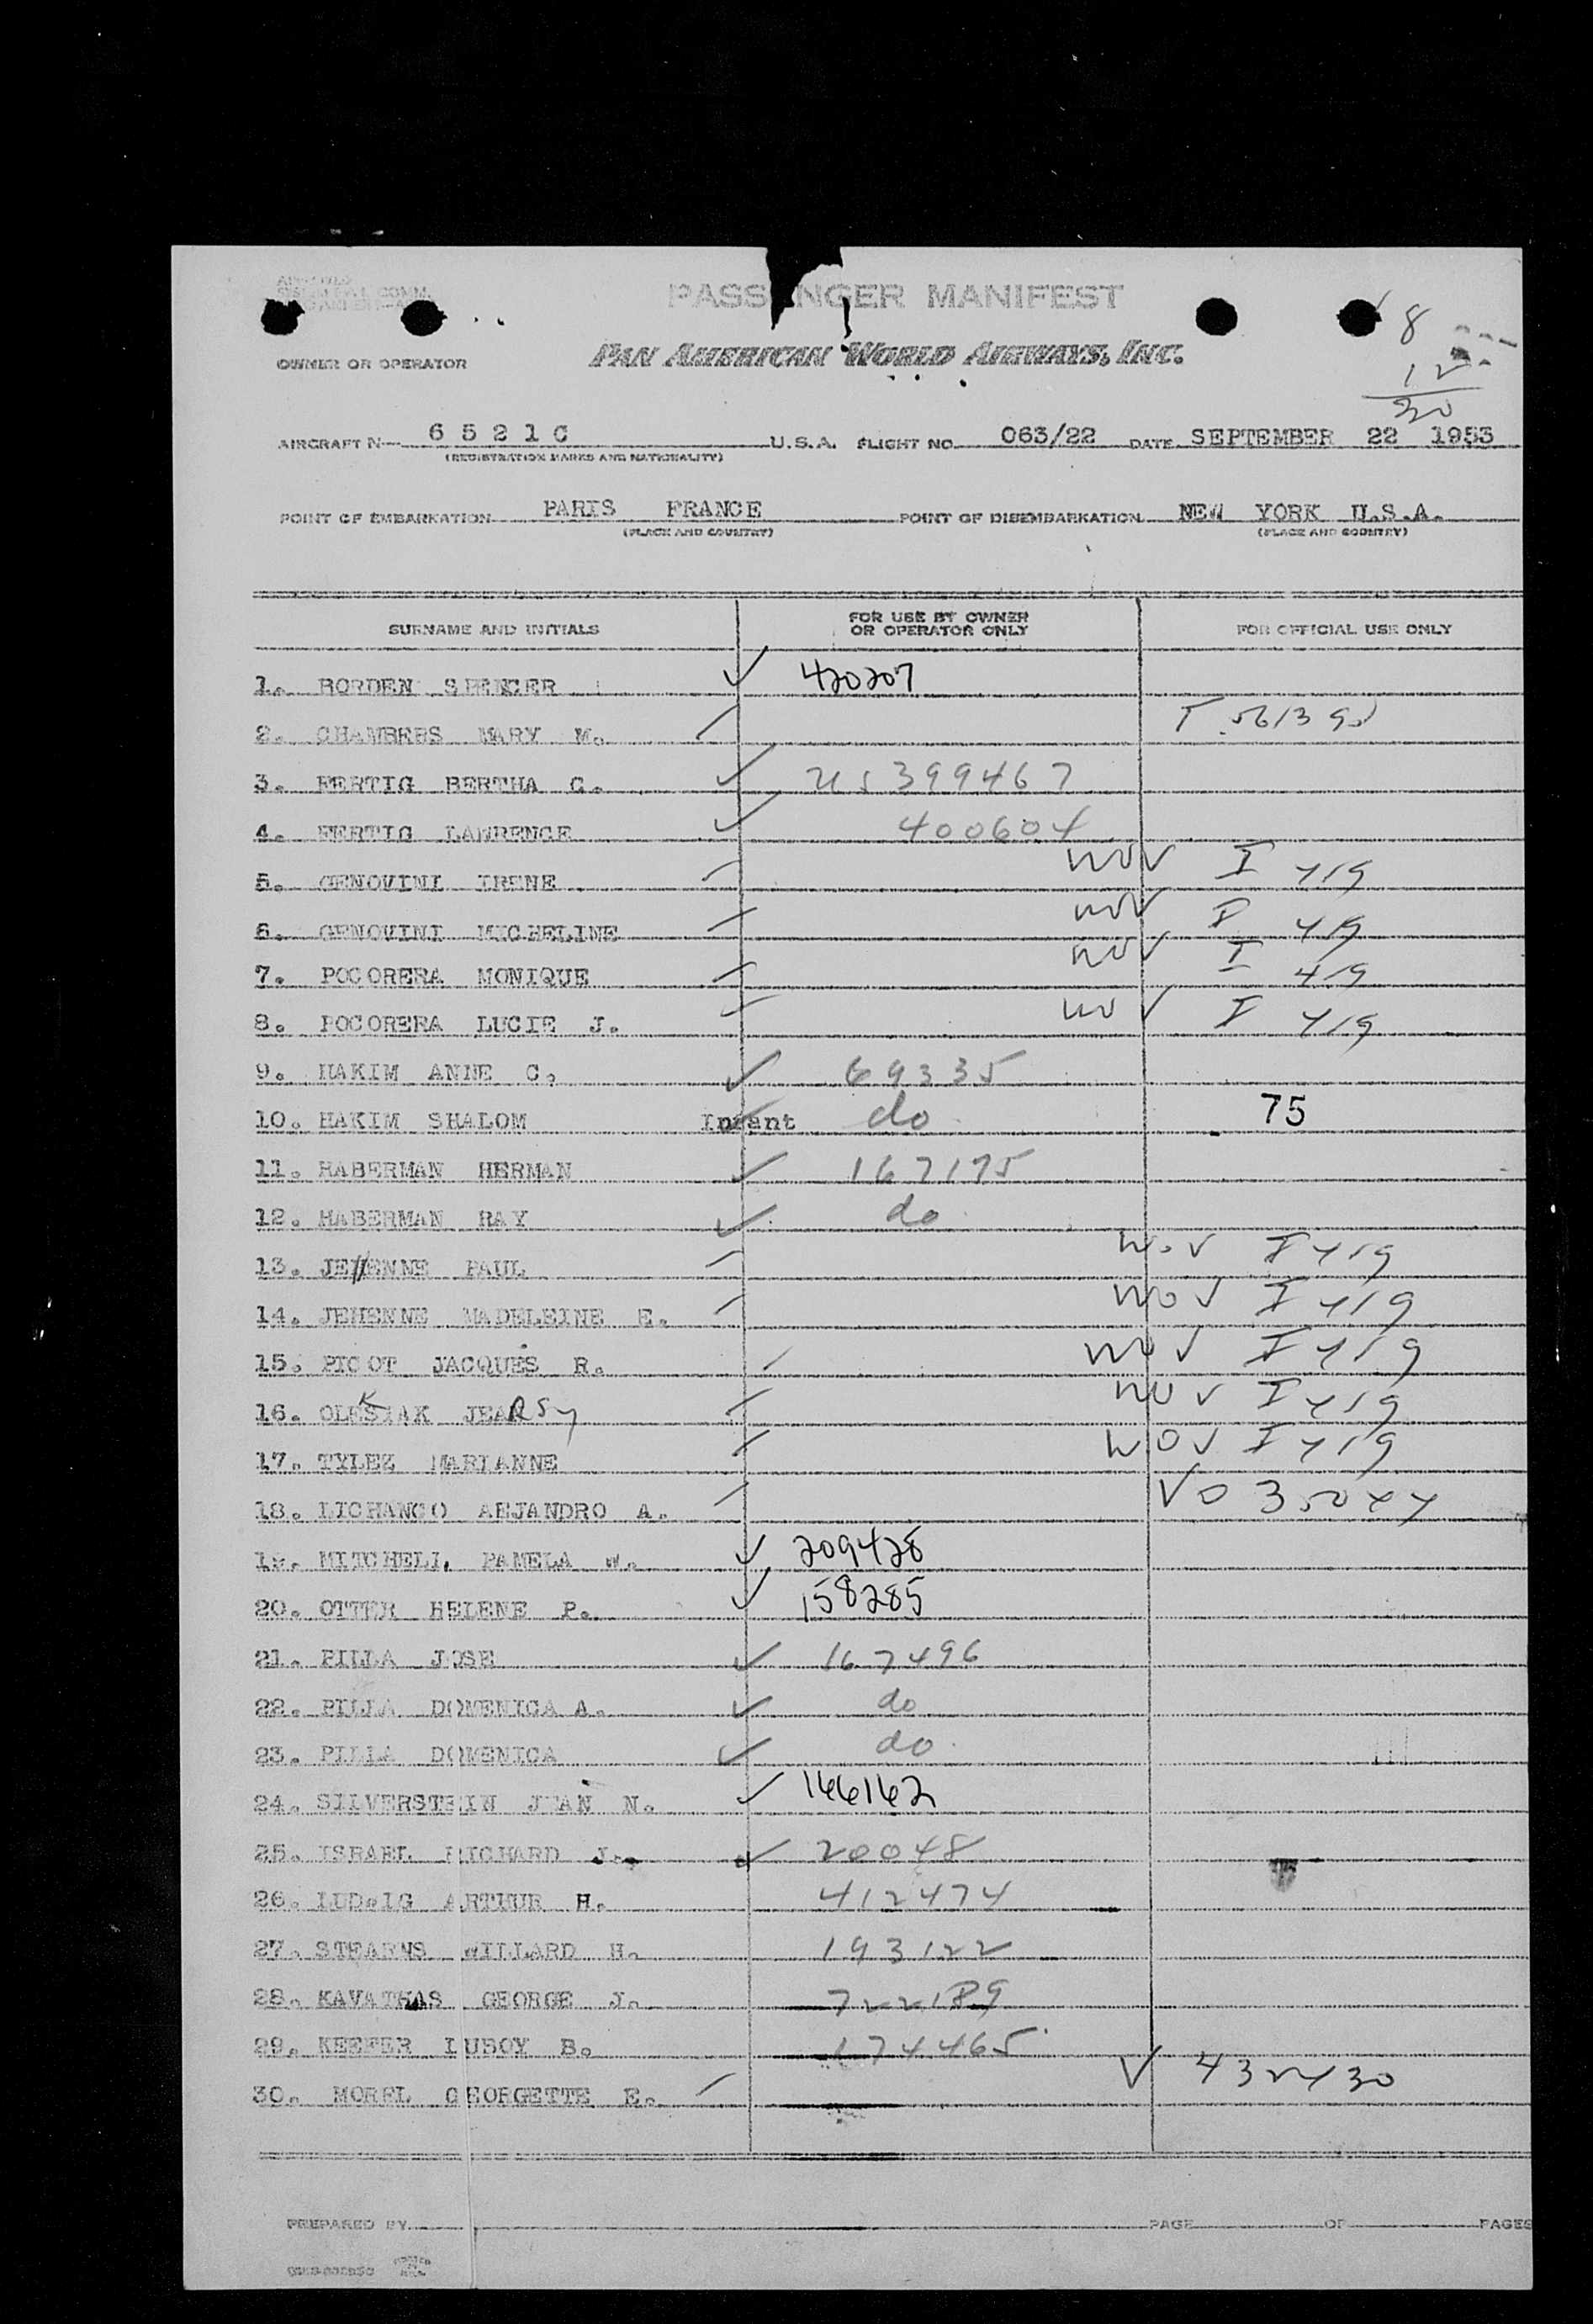 PASSENGER MANIFEST
8
OWNER OR OPERATOR PAN AMERICAN WORLD AIRWAYS, INC.
12
20
AIRCRAFT N— 6 5 2 1 C U.S.A. FLIGHT NO. 063/22 DATE SEPTEMBER 22 1953
(REGISTRATION MARKS AND NATIONALITY)
POINT OF EMBARKATION PARIS FRANCE POINT OF DISEMBARKATION NEW YORK U.S.A.
(PLACE AND COUNTRY) (PLACE AND COUNTRY)
SURNAME AND INITIALS FOR USE BY OWNER OR OPERATOR ONLY FOR OFFICIAL USE ONLY
1. BORDEN SPENCER 420207
2. CHAMBERS MARY M.
3. FERTIG BERTHA C. 399467
4. FERTIG LAWRENCE 400604
5. GENOVINI IRENE I 419
6. GENOVINI MICHELINE I 419
7. POCORERA MONIQUE I 419
8. POCORERA LUCIE J. I 419
9. HAKIM ANNE C. 69335
10. HAKIM SHALOM Infant do 75
11. HABERMAN HERMAN 167175
12. HABERMAN RAY do
13. JEHENNE PAUL I 419
14. JEHENNE MADELEINE E. I 419
15. PICOT JACQUES R. I 419
16. I 419
17. TYLEZ MARIANNE I 419
18. LICHANCO AEJANDRO A.
19. MITCHELL PAMELA W. 209428
20. OTTER HELENE P. 158285
21. PILLA JOSE 167496
22. PILLA DOMENICA A. do
23. PILLA DOMENICA do
24. SILVERSTEIN JEAN N. 146162
25. ISRAEL RICHARD J. 20048
26. LUDWIG ARTHUR H. 412474
27. STEARNS WILLARD H. 193122
28. KAVATHAS GEORGE J. 722189
29. KEEFER LUBOY B. 174465
30. MOREL GEORGETTE E. V 432430
PREPARED BY PAGE OF PAGES